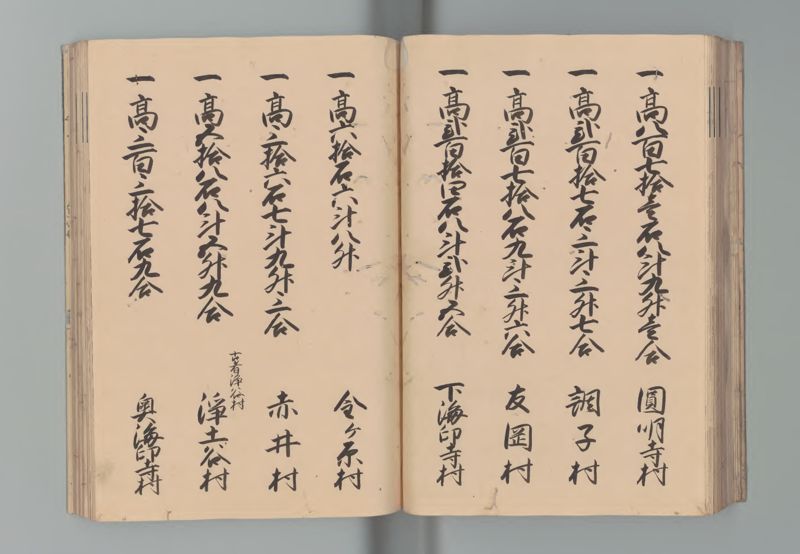 一高八百七拾壱石八斗九升壱合 圓明寺村
一高弐百拾七石三斗三升七合 調子村
一高弐百七拾八石九斗三升六合 友岡村
一高弐百拾四石八斗弐升五合 下海印寺村
一高六拾石六斗八升 金ケ原村
一高三拾六石七斗九升三合 赤井村
古者浄谷村
一高五拾八石八斗五升九合 浄土谷村
一高三百三拾七石九合 奥海印寺村